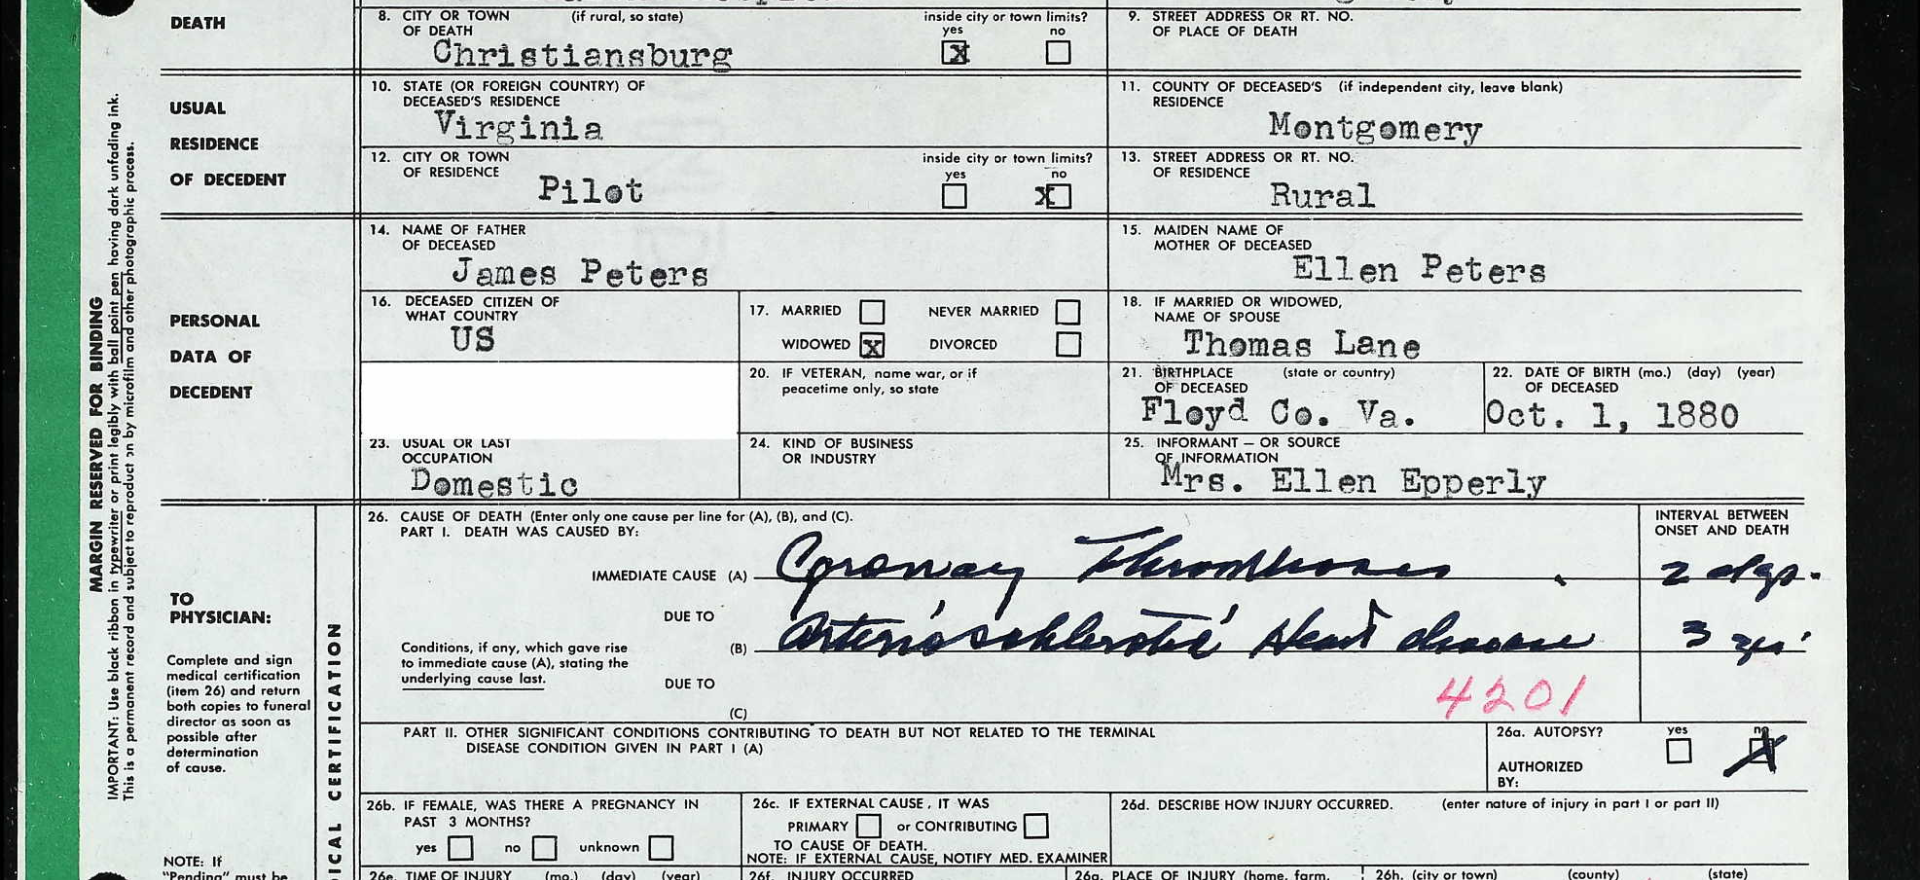 DEATH
8. CITY OR TOWN (if rural, so state) inside city or town limits?
OF DEATH yes no
Christiansburg x
9. STREET ADDRESS OR RT. NO.
OF PLACE OF DEATH
USUAL
RESIDENCE
OF DECEDENT
10. STATE (OR FOREIGN COUNTRY) OF
DECEASED'S RESIDENCE
Virginia
11. COUNTY OF DECEASED'S (if independent city, leave blank)
RESIDENCE
Montgomery
12. CITY OR TOWN inside city or town limits?
OF RESIDENCE yes no
Pilot x
13. STREET ADDRESS OR RT. NO.
OF RESIDENCE
Rural
PERSONAL
DATA OF
DECEDENT
14. NAME OF FATHER
OF DECEASED
James Peters
15. MAIDEN NAME OF
MOTHER OF DECEASED
Ellen Peters
16. DECEASED CITIZEN OF
WHAT COUNTRY
US
17. MARRIED NEVER MARRIED
WIDOWED x DIVORCED
18. IF MARRIED OR WIDOWED,
NAME OF SPOUSE
Thomas Lane
20. IF VETERAN, name war, or if
peacetime only, so state
21. BIRTHPLACE (state or country)
OF DECEASED
Floyd Co. Va.
22. DATE OF BIRTH (mo.) (day) (year)
OF DECEASED
Oct. 1, 1880
23. USUAL OR LAST
OCCUPATION
Domestic
24. KIND OF BUSINESS
OR INDUSTRY
25. INFORMANT – OR SOURCE
OF INFORMATION
Mrs. Ellen Epperly
MARGIN RESERVED FOR BINDING
IMPORTANT: Use black ribbon in typewriter or print legibly with ball point pen having dark unfading ink.
This is a permanent record and subject to reproduction by microfilm and other photographic process.
TO
PHYSICIAN:
Complete and sign
medical certification
(item 26) and return
both copies to funeral
director as soon as
possible after
determination
of cause.
NOTE: If
"Pending" must be
DICAL CERTIFICATION
26. CAUSE OF DEATH (Enter only one cause per line for (A), (B), and (C).
PART I. DEATH WAS CAUSED BY:
INTERVAL BETWEEN
ONSET AND DEATH
IMMEDIATE CAUSE (A) Coronary Thrombosis 2 dys.
DUE TO
Conditions, if any, which gave rise
to immediate cause (A), stating the
underlying cause last.
(B) Arteriosclerotic Heart disease 3 yrs
DUE TO
(C)
4201
PART II. OTHER SIGNIFICANT CONDITIONS CONTRIBUTING TO DEATH BUT NOT RELATED TO THE TERMINAL
DISEASE CONDITION GIVEN IN PART I (A)
26a. AUTOPSY? yes no
X
AUTHORIZED
BY:
26b. IF FEMALE, WAS THERE A PREGNANCY IN
PAST 3 MONTHS?
yes no unknown
26c. IF EXTERNAL CAUSE, IT WAS
PRIMARY or CONTRIBUTING
TO CAUSE OF DEATH.
NOTE: IF EXTERNAL CAUSE, NOTIFY MED. EXAMINER
26d. DESCRIBE HOW INJURY OCCURRED. (enter nature of injury in part I or part II)
26e. TIME OF INJURY (mo.) (day) (year)
26f. INJURY OCCURRED
26g. PLACE OF INJURY (home, farm,
26h. (city or town) (county) (state)